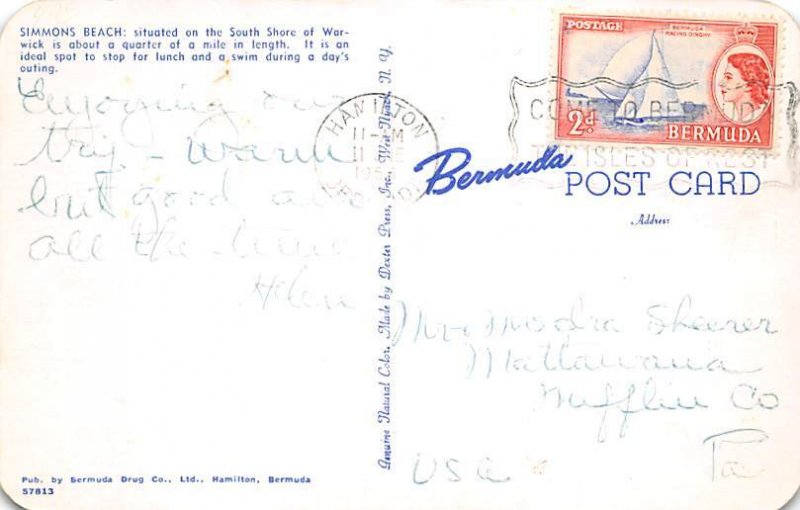 SIMMONS BEACH: situated on the South Shore of War-
wick is about a quarter of a mile in length. It is an
ideal spot to stop for lunch and a swim during a day's
outing.
Enjoying our
trip - warm
but good
all the time
Helen
Pub. by Bermuda Drug Co., Ltd., Hamilton, Bermuda
57813
Genuine Natural Color, Made by Dexter Press, Inc., West Nyack, N. Y.
HAMILTON
11-AM
POSTAGE
BERMUDA
RACING DINGHY
2d.
BERMUDA
COME TO BERMUDA
THE ISLES OF REST
Bermuda
POST CARD
Address:
Sheerer
Mattawana
Mifflin Co
Pa
USA